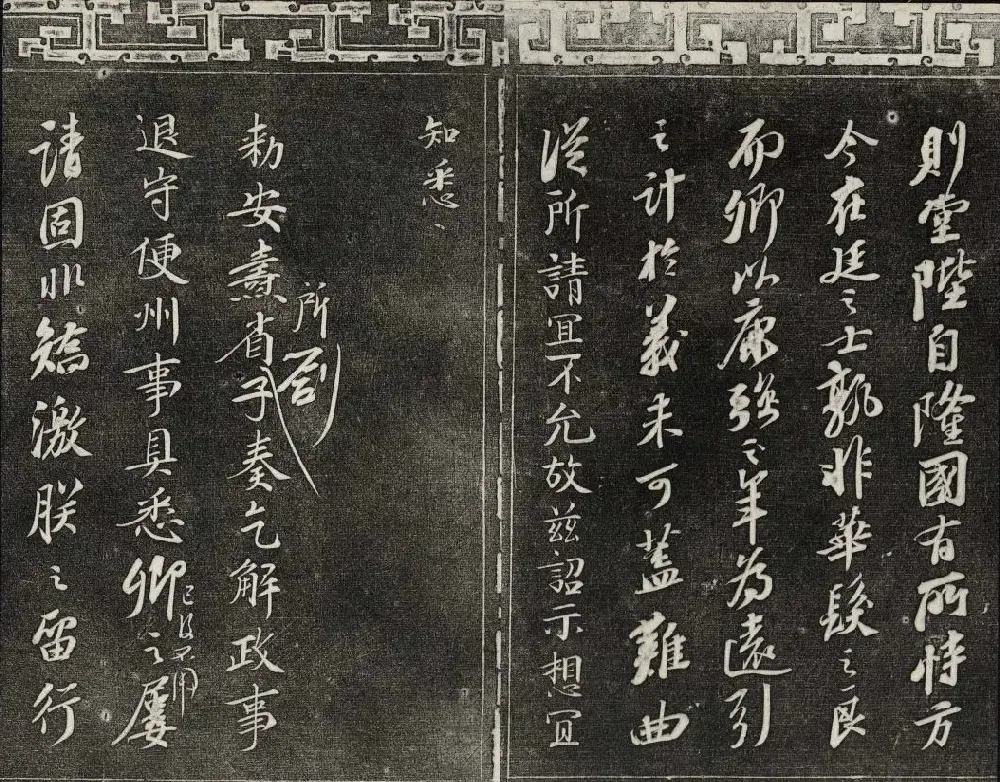 則堂陛自隆國有所恃方
今在廷之士孰非華髮之良
而卿以康強之年為遠引
之計於義未可蓋難曲
從所請宜不允故茲詔示想宜
知悉、
敕安燾省所劄子奏乞解政事
退守便州事具悉卿之屢
請固非矯激朕之留行